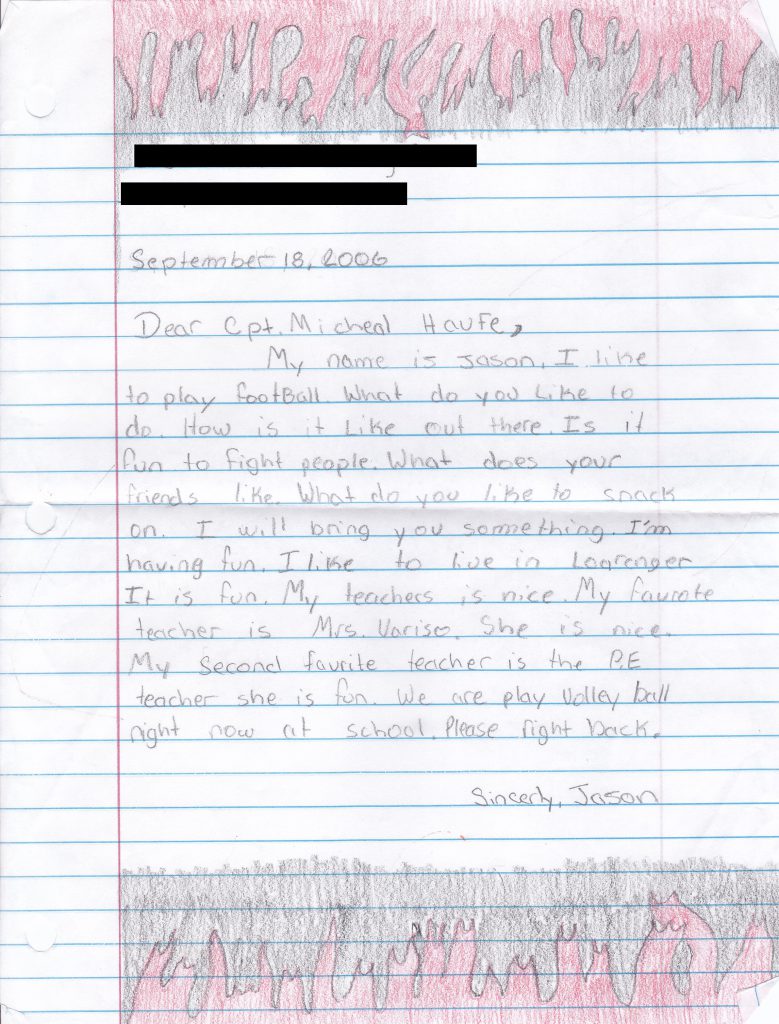 September 18, 2006
Dear Cpt. Micheal Haufe,
My name is Jason. I like
to play football. What do you like to
do. How is it like out there. Is it
fun to fight people. What does your
friends like. What do you like to snack
on. I will bring you something. I'm
having fun. I like to live in Loarenger
It is fun. My teachers is nice. My favrote
teacher is Mrs. Variso. She is nice.
My second favrite teacher is the P.E
teacher she is fun. We are play Volley ball
right now at school. Please right back.
Sincerly, Jason